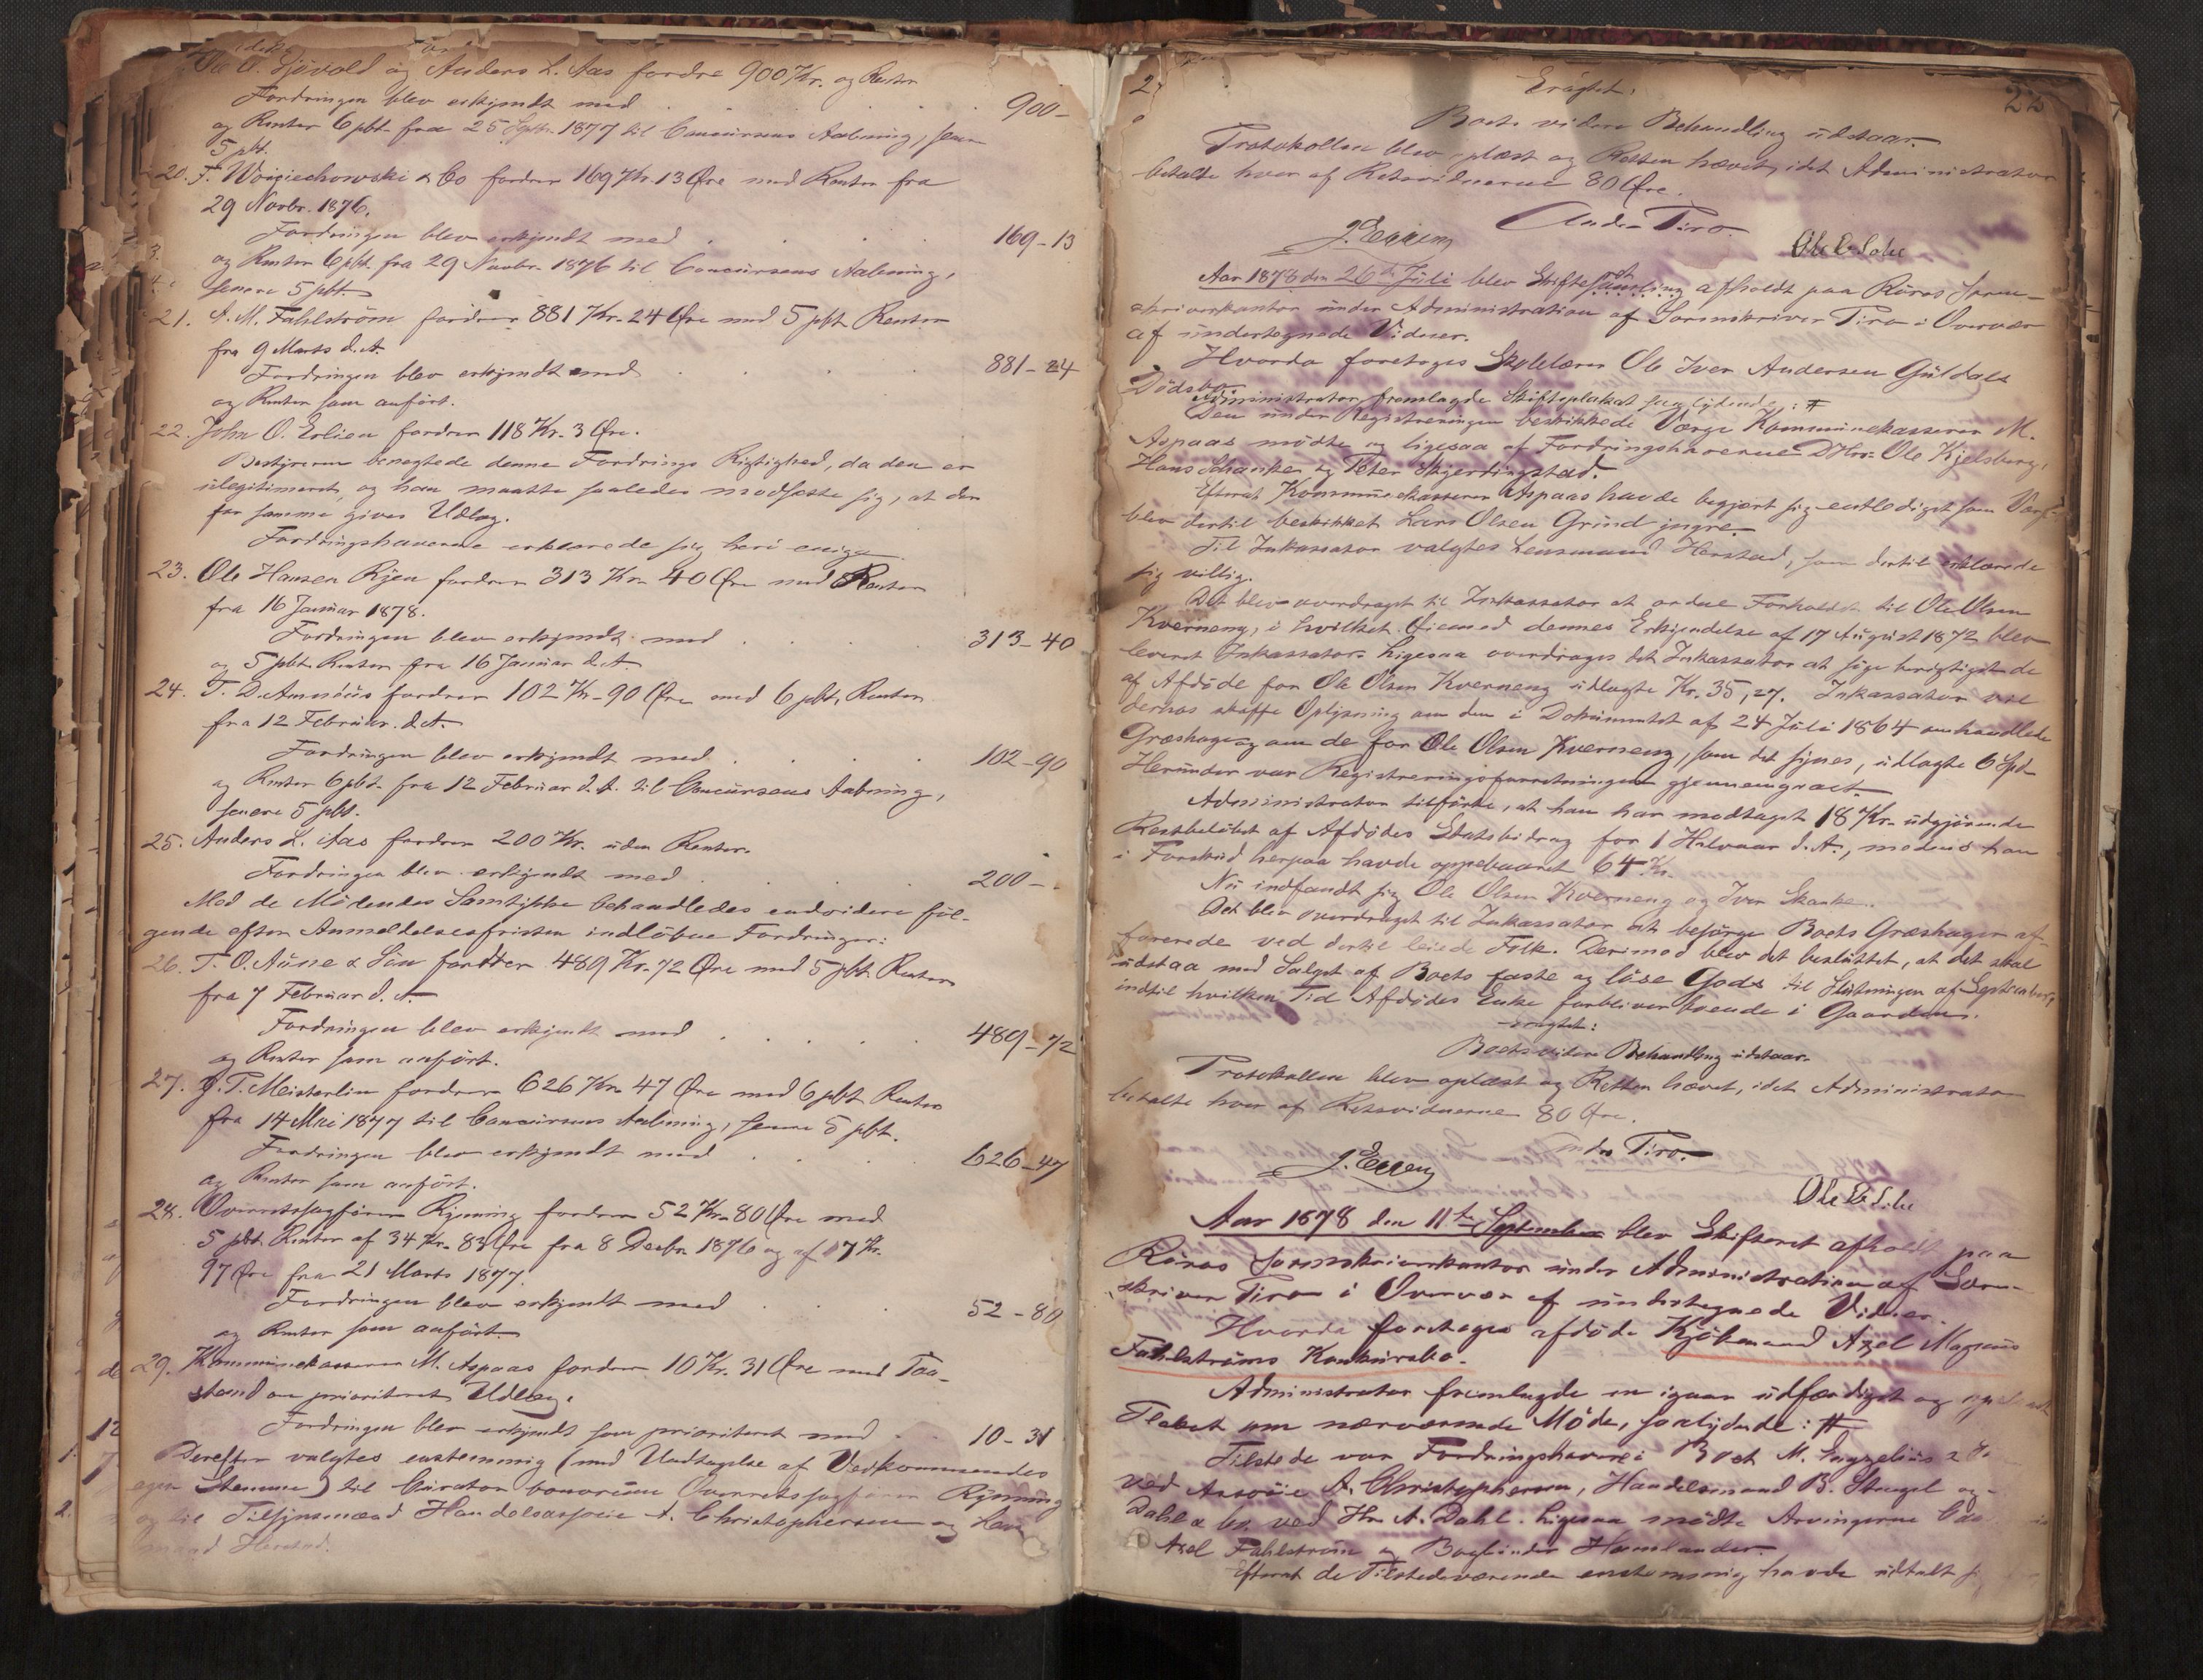 Ole O. Sjövold og Anders L. Aas fordre 900 Kr. og Renter
Fordringen blev erkjendt med . . . 900 -
og Renter 6 pbt. fra 25 Septbr. 1877 til Concursens Aabning, senere
5 pbt.
20. F. Woiciechowski & Co fordrer 169 Kr. 13 Øre med Renter fra
29 Novbr. 1876.
Fordringen blev erkjendt med . . . 169-13
og Renter 6 pbt. fra 29 Novbr. 1876 til Concursens Aabning,
senere 5 pbt.
21. A. M. Fahlström fordrer 881 Kr. 24 Øre med 5 pbt. Renter
fra 9 Marts d. A.
Fordringen blev erkjendt med . . . 881-24
og Renter som anfört.
22. John O. Erlien fordrer 118 Kr. 3 Øre.
Bestyreren benegtede denne Fordrings Rigtighed, da den er
ulegitimeret, og han maatte saaledes modsætte sig, at der
for samme gives Udlæg.
Fordringshaverne erklærede sig heri enige.
23. Ole Hansen Ryen fordrer 313 Kr. 40 Øre med Renter
fra 16 Januar 1878.
Fordringen blev erkjendt med . . . 313-40
og 5 pbt. Renter fra 16 Januar d. A.
24. T. D. Amnéus fordrer 102 Kr. 90 Øre med 6 pbt. Renter
fra 12 Februar d. A.
Fordringen blev erkjendt med . . . 102-90
og Renter 6 pbt. fra 12 Februar d. A. til Concursens Aabning,
senere 5 pbt.
25. Anders L. Aas fordrer 200 Kr. uden Renter.
Fordringen blev erkjendt med . . . 200 -
Med de Mödendes Samtykke behandledes endvidere föl-
gende efter Anmeldelsesfristen indlöbne Fordringer:
26. T. O. Aune & Sön fordrer 489 Kr. 72 Øre med 5 pbt. Renter
fra 7 Februar d. A.
Fordringen blev erkjendt med . . . 489-72
og Renter som anfört.
27. J. T. Meisterlin fordrer 626 Kr. 47 Øre med 6 pbt. Renter
fra 14 Mai 1877 til Concursens Aabning, senere 5 pbt.
Fordringen blev erkjendt med . . . 626-47
og Renter som anfört.
28. Overretssagförer Rynning fordrer 52 Kr. 80 Øre med
5 pbt. Renter af 34 Kr. 83 Øre fra 8 Decbr. 1876 og af 17 Kr.
97 Øre fra 21 Marts 1877.
Fordringen blev erkjendt med . . . 52-80
og Renter som anfört.
29. Kommunekasserer M. Aspaas fordrer 10 Kr. 31 Øre med Paa-
stand om prioriteret Udlæg.
Fordringen blev erkjendt som prioriteret med . . 10-31
Derefter valgtes enstemmig (med Undtagelse af Vedkommendes
egen Stemme) til Curator bonorum Overretssagförer Rynning
og til Tilsynsmænd Handelsassocie A. Christophersen og Lens
mand Herstad.
22
Eragtet:
Boets videre Behandling udstaar.
Protokollen blev oplæst og Retten hævet, idet Administrator
betalte hver af Retsvidnerne 80 Øre.
Anders Tiro.
J. Eggen Ole E. Solie
Aar 1878 den 26de Juli blev Skifteret afholdt paa Röros Soren-
skriverkontor under Administration af Sorenskriver Tiro i Overvær
af undertegnede Vidner.
Hvorda foretoges Skolelærer Ole Iver Andersen Guldals
Dödsbo.
Administrator fremlagde Skifteplakat saalydende: #
Den under Registreringen beskikkede Værge Kommunekasserer M.
Aspaas mödte og ligesaa af Fordringshaverne DHrr. Ole Kjelsberg,
Hans Schanken og Peter Skjerdingstad.
Efterat Kommunekasserer Aspaas havde begjært sig entlediget som Værge
blev dertil beskikket Lars Olsen Grind yngre.
Til Inkassator valgtes Lensmand Herstad, som dertil erklærede
sig villig.
Det blev overdraget til Inkassator at ordne Forholdet til Ole Olsen
Kverneng, i hvilket Öiemed dennes Erkjendelse af 17 August 1872 blev
leveret Inkassator. Ligesaa overdroges det Inkassator at söge berigtiget de
af Afdöde for Ole Olsen Kverneng udlagte Kr. 35,27. Inkassator vil
derhos skaffe Oplysning om den i Dokumentet af 24 Juli 1864 omhandlede
Græshage og om de for Ole Olsen Kverneng, som det synes, udlagte 6 Spd.
Herunder var Registreringsforretningen gjennemgaaet.
Administrator tilförte, at han har modtaget 18 Kr. udgjörende
Restbelöbet af Afdödes Statsbidrag for 1 Halvaar d. A., medens han
i Forskud herpaa havde oppebaaret 64 Kr.
Nu indfandt sig Ole Olsen Kverneng og Iver Skanke.
Det blev overdraget til Inkassator at besörge Boets Græshager af-
foerede ved dertil leiede Folk. Derimod blev det besluttet, at det skal
udstaa med Salget af Boets faste og löse Gods til Slutningen af September,
indtil hvilken Tid Afdödes Enke forbliver boende i Gaarden.
eragtet:
Boets videre Behandling udstaar.
Protokollen blev oplæst og Retten hævet, idet Administrator
betalte hver af Retsvidnerne 80 Øre.
Anders Tiro.
J. Eggen Ole E. Solie
Aar 1878 den 11te September blev Skifteret afholdt paa
Röros Sorenskriverkontor under Administration af Soren-
skriver Tiro i Overvær af undertegnede Vidner.
Hvorda foretoges afdöde Kjöbmand Axel Magnus
Fahlströms Konkursbo.
Administrator fremlagde en igaar udfærdiget og oplæst
Placat om nærværende Möde, saalydende: #
Tilstede var Fordringshaverne i Boet M. Engzelius &
ved Associe A. Christophersen, Handelsmand B. Stengel og
Dahl & Co. ved Hr. A. Dahl. Ligesaa mödte Arvingerne
Axel Fahlström og Bogbinder Hamlander.
Efterat de Tilstedeværende enstemmig havde udtalt